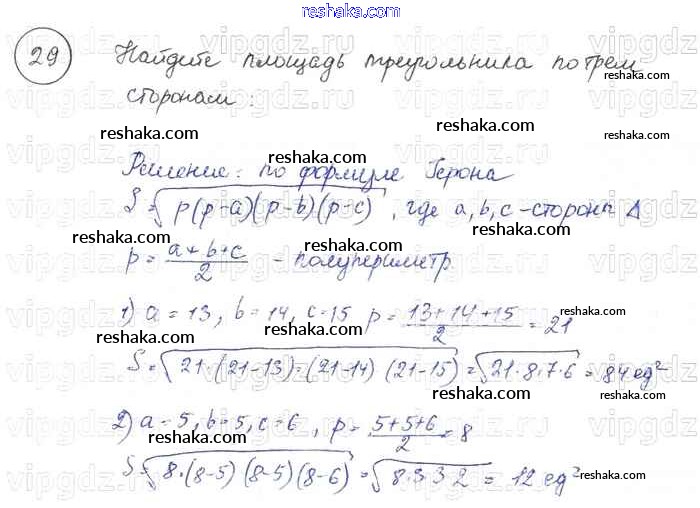 reshaka.com
29 Найдите площадь треугольника по трем
сторонам:
Решение: по формуле Герона
S = √p(p-a)(p-b)(p-c), где a, b, c - стороны Δ
p = (a+b+c)/2 - полупериметр
1) a = 13, b = 14, c = 15 p = (13+14+15)/2 = 21
S = √21·(21-13)·(21-14)(21-15) = √21·8·7·6 = 84 ед²
2) a = 5, b = 5, c = 6, p = (5+5+6)/2 = 8
S = √8·(8-5)(8-5)(8-6) = √8·3·3·2 = 12 ед²